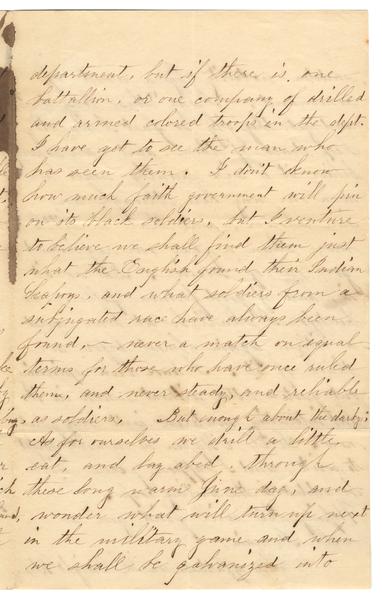 department, but if there is one
battallion, or one company of drilled
and armed colored troops in the dept.
I have got to see the man who
has seen them. I don't know
how much faith government will pin
on its black soldiers, but I venture
to believe we shall find them just
what the English found their Indian
Seapoys, and what soldiers from a
subjugated race have always been
found, – never a match on equal
terms for those who have once ruled
them, and never steady, and reliable
as soldiers. But enough about the darky;
As for ourselves we drill a little
eat, and lay abed through
these long warm June days, and
wonder what will turn up next
in the military game and when
we shall be galvanized into